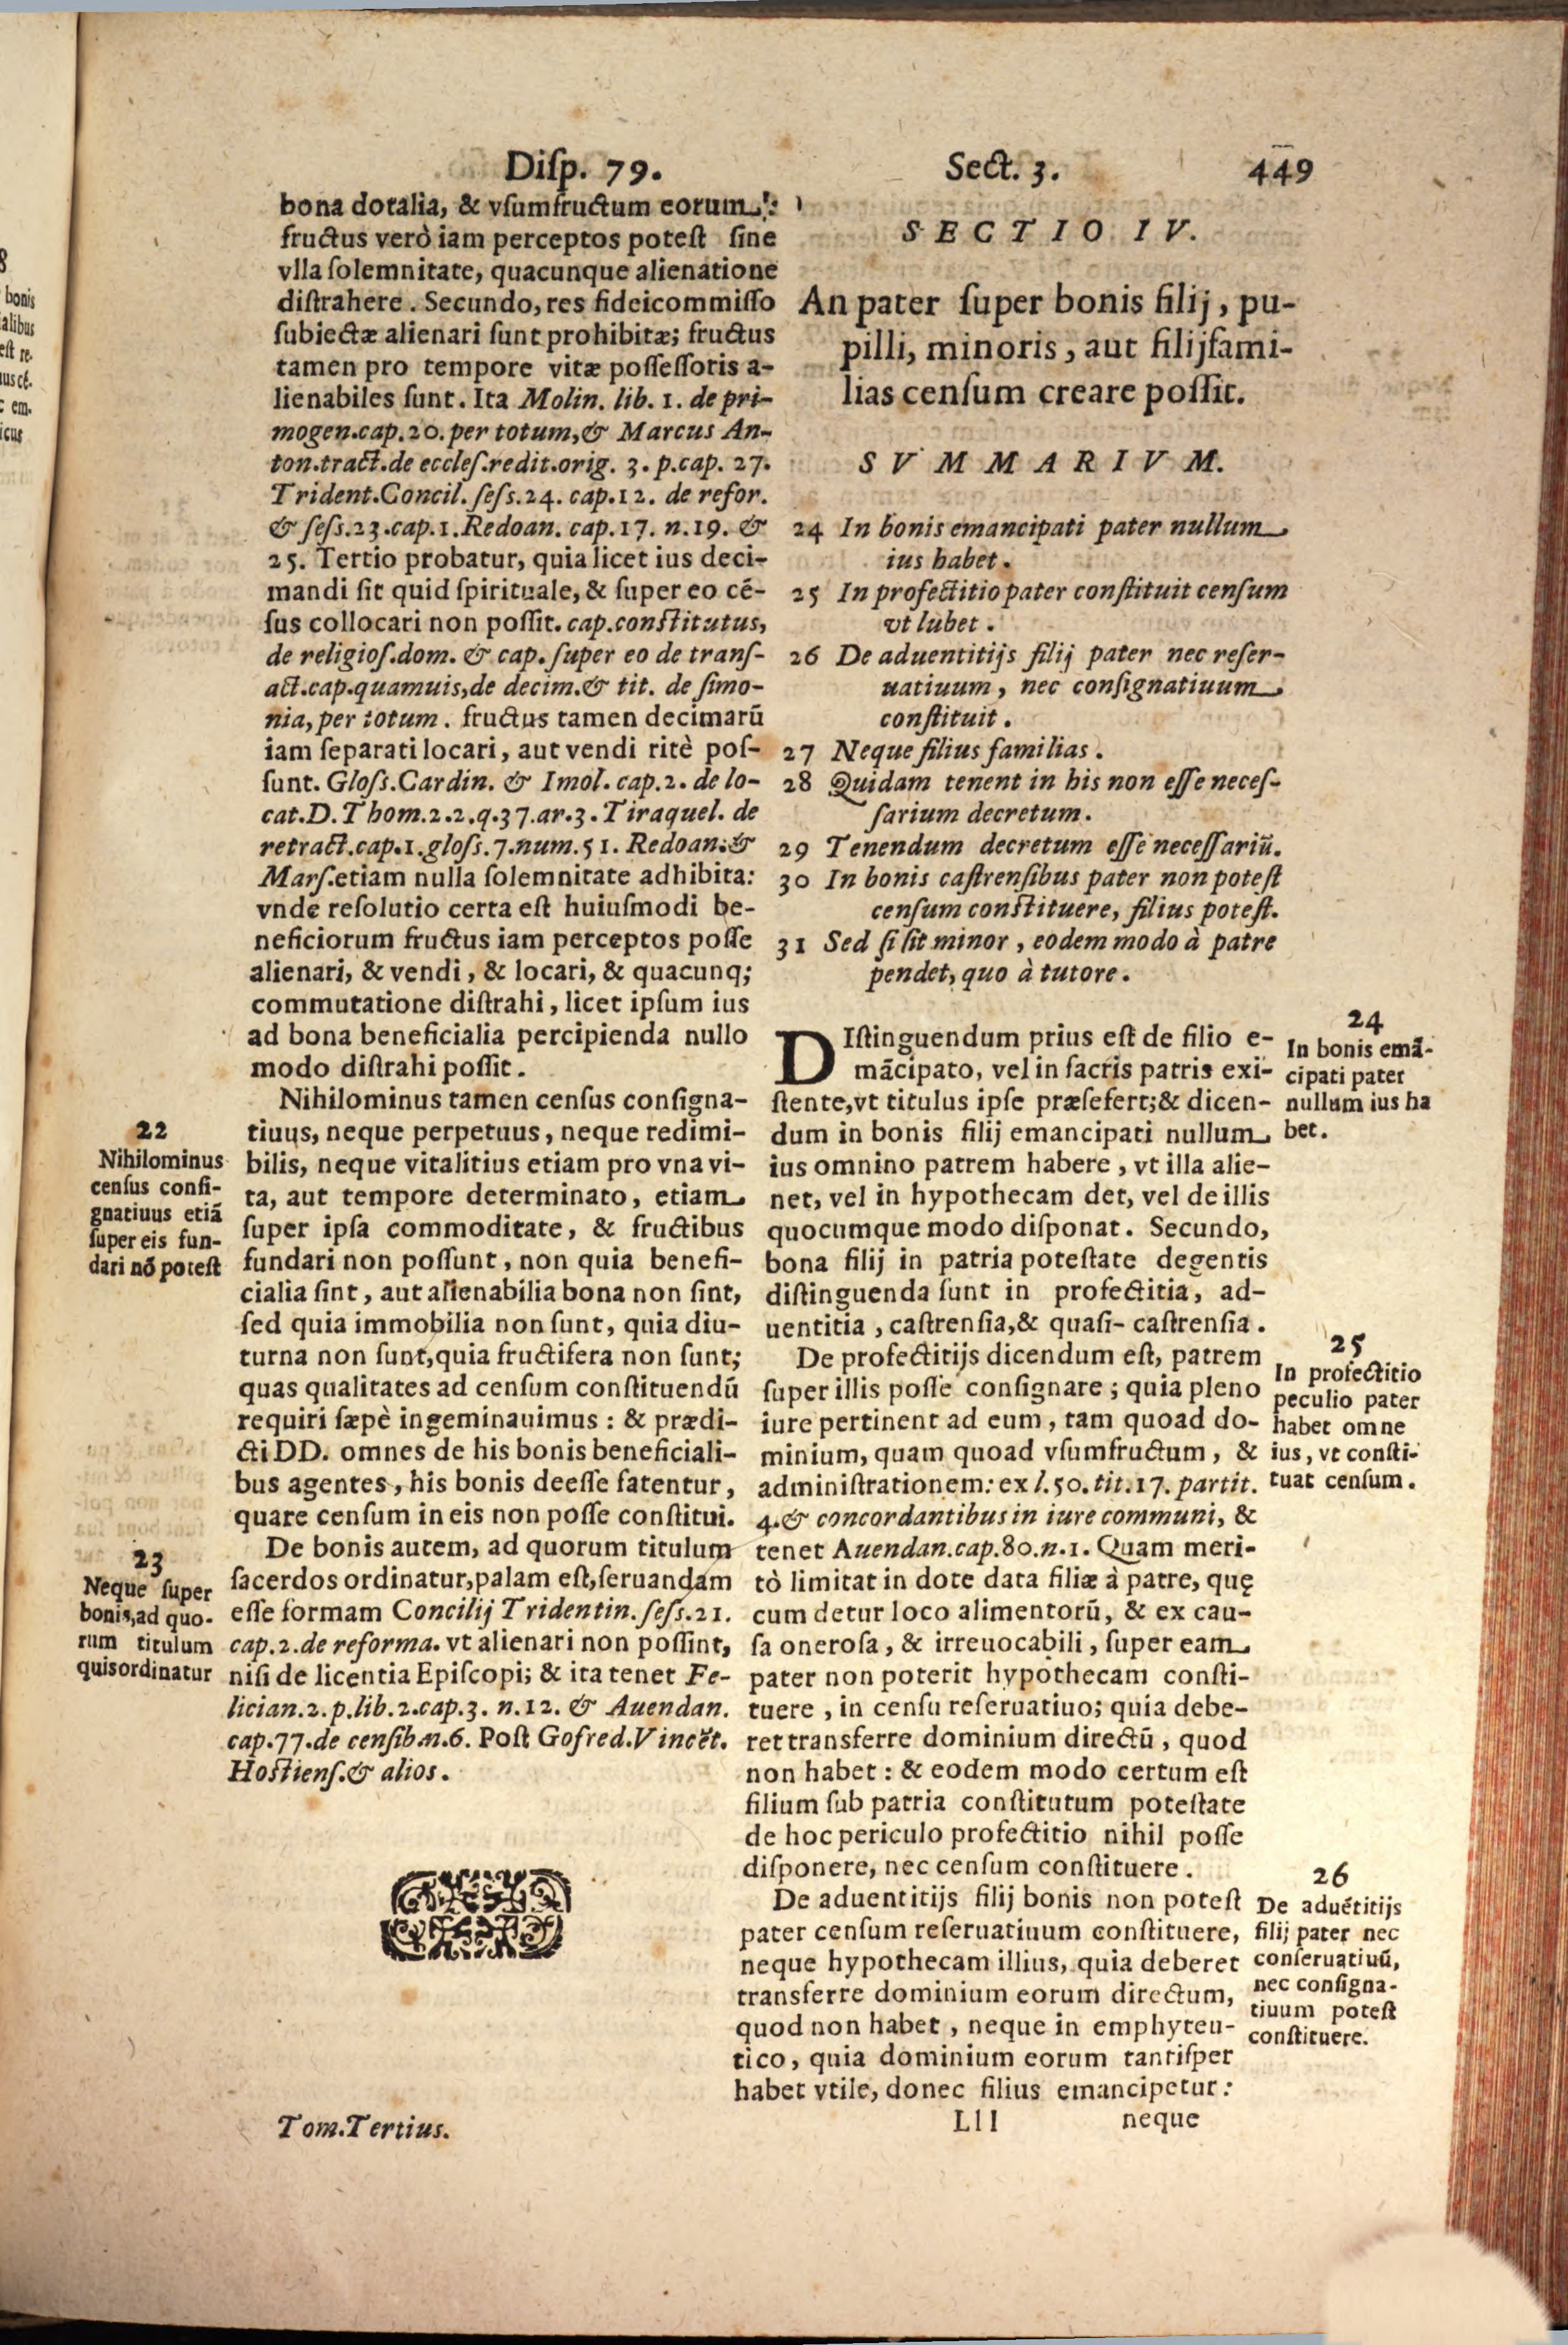 Diſp. 79.
Sect. 3.
449
bona dotalia, & vſumfructum eorum:
fructus verò iam perceptos poteſt ſine
vlla ſolemnitate, quacunque alienatione
diſtrahere. Secundo, res fideicommiſſo
ſubiectæ alienari ſunt prohibitæ; fructus
tamen pro tempore vitæ poſſeſſoris a-
lienabiles ſunt. Ita Molin. lib. 1. de pri-
mogen.cap.20.per totum,& Marcus An-
ton.tract.de eccleſ.redit.orig. 3. p.cap. 27.
Trident.Concil. ſeſs.24. cap.12. de refor.
& ſeſs.23.cap.1.Redoan. cap.17. n.19. &
25. Tertio probatur, quia licet ius deci-
mandi ſit quid ſpirituale, & ſuper eo cẽ-
ſus collocari non poſſit. cap.conſtitutus,
de religioſ.dom. & cap. ſuper eo de tranſ-
act.cap.quamuis,de decim.& tit. de ſimo-
nia, per totum. fructus tamen decimarũ
iam ſeparati locari, aut vendi ritè poſ-
ſunt. Gloſs.Cardin. & Imol. cap.2. de lo-
cat.D.Thom.2.2.q.37.ar.3.Tiraquel. de
retract.cap.1.gloſs.7.num.51. Redoan.&
Marſ.etiam nulla ſolemnitate adhibita:
vnde reſolutio certa eſt huiuſmodi be-
neficiorum fructus iam perceptos poſſe
alienari, & vendi, & locari, & quacunq;
commutatione diſtrahi, licet ipſum ius
ad bona beneficialia percipienda nullo
modo diſtrahi poſſit.
Nihilominus tamen cenſus conſigna-
tiuus, neque perpetuus, neque redimi-
bilis, neque vitalitius etiam pro vna vi-
ta, aut tempore determinato, etiam
ſuper ipſa commoditate, & fructibus
fundari non poſſunt, non quia benefi-
cialia ſint, aut alienabilia bona non ſint,
ſed quia immobilia non ſunt, quia diu-
turna non ſunt,quia fructifera non ſunt;
quas qualitates ad cenſum conſtituendũ
requiri ſæpè ingeminauimus: & prædi-
cti DD. omnes de his bonis beneficiali-
bus agentes, his bonis deeſſe fatentur,
quare cenſum in eis non poſſe conſtitui.
De bonis autem, ad quorum titulum
ſacerdos ordinatur,palam eſt,ſeruandam
eſſe formam Concilij Tridentin. ſeſs.21.
cap.2.de reforma. vt alienari non poſſint,
niſi de licentia Epiſcopi; & ita tenet Fe-
lician.2.p.lib.2.cap.3. n.12. & Auendan.
cap.77.de cenſib.n.6. Poſt Gofred.Vincẽt.
Hoſtienſ.& alios.
22
Nihilominus
cenſus conſi-
gnatiuus etiã
ſuper eis fun-
dari nõ poteſt
23
Neque ſuper
bonis,ad quo-
rum titulum
quis ordinatur
SECTIO IV.
An pater ſuper bonis filij, pu-
pilli, minoris, aut filijfami-
lias cenſum creare poſſit.
SVMMARIVM.
24 In bonis emancipati pater nullum
ius habet.
25 In profectitio pater conſtituit cenſum
vt lubet.
26 De aduentitijs filij pater nec reſer-
uatiuum, nec conſignatiuum
conſtituit.
27 Neque filius familias.
28 Quidam tenent in his non eſſe neceſ-
ſarium decretum.
29 Tenendum decretum eſſe neceſſariũ.
30 In bonis caſtrenſibus pater non poteſt
cenſum conſtituere, filius poteſt.
31 Sed ſi ſit minor, eodem modo à patre
pendet, quo à tutore.
DIſtinguendum prius eſt de filio e-
mãcipato, vel in ſacris patris exi-
ſtente,vt titulus ipſe præſefert;& dicen-
dum in bonis filij emancipati nullum
ius omnino patrem habere, vt illa alie-
net, vel in hypothecam det, vel de illis
quocumque modo diſponat. Secundo,
bona filij in patria poteſtate degentis
diſtinguenda ſunt in profectitia, ad-
uentitia, caſtrenſia,& quaſi-caſtrenſia.
De profectitijs dicendum eſt, patrem
ſuper illis poſſe conſignare; quia pleno
iure pertinent ad eum, tam quoad do-
minium, quam quoad vſumfructum, &
adminiſtrationem: ex l.50.tit.17. partit.
4.& concordantibus in iure communi, &
tenet Auendan.cap.80.n.1. Quam meri-
tò limitat in dote data filiæ à patre, quę
cum detur loco alimentorũ, & ex cau-
ſa oneroſa, & irreuocabili, ſuper eam
pater non poterit hypothecam conſti-
tuere, in cenſu reſeruatiuo; quia debe-
ret transferre dominium directũ, quod
non habet: & eodem modo certum eſt
filium ſub patria conſtitutum poteſtate
de hoc periculo profectitio nihil poſſe
diſponere, nec cenſum conſtituere.
De aduentitijs filij bonis non poteſt
pater cenſum reſeruatiuum conſtituere,
neque hypothecam illius, quia deberet
transferre dominium eorum directum,
quod non habet, neque in emphyteu-
tico, quia dominium eorum tantiſper
habet vtile, donec filius emancipetur:
24
In bonis emã-
cipati pater
nullum ius ha
bet.
25
In profectitio
peculio pater
habet omne
ius, vt conſti-
tuat cenſum.
26
De aduẽtitijs
filij pater nec
conſeruatiuũ,
nec conſigna-
tiuum poteſt
conſtituere.
Tom.Tertius.
Lll
neque
bonis